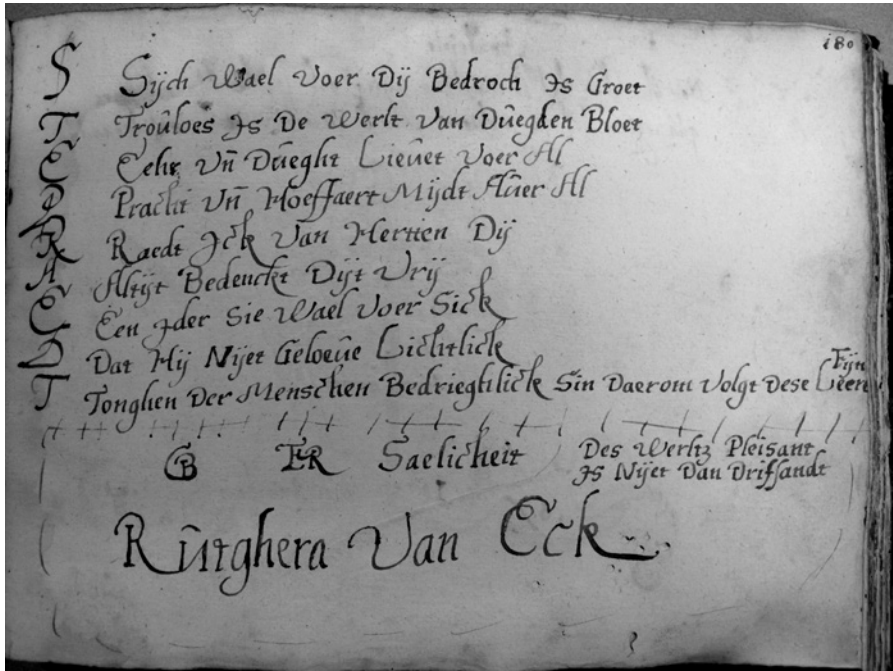 180
S Sijch Wael Voer Dij Bedroch Is Groet
T Troûloes Is De Werlt Van Dûegden Bloet
E Eehr Vn̄ Dûeght Lieûet Voer Al
P Pracht Vn̄ Hoeffaert Mijdt Aûer Al
R Raedt Ick Van Hertten Dij
A Altijt Bedenckt Dijt Vrij
E Een Ider Sie Wael Voer Sick
D Dat Hij Nijet Geloeûe Lichtlick
T Tonghen Der Menschen Bedrieghlick Sin Daerom Volgt Dese Leere
Fijn
Saelicheit
Des Werltz Pleisant
Is Nijet Dan Driffandt
Rûtghera Van Eck